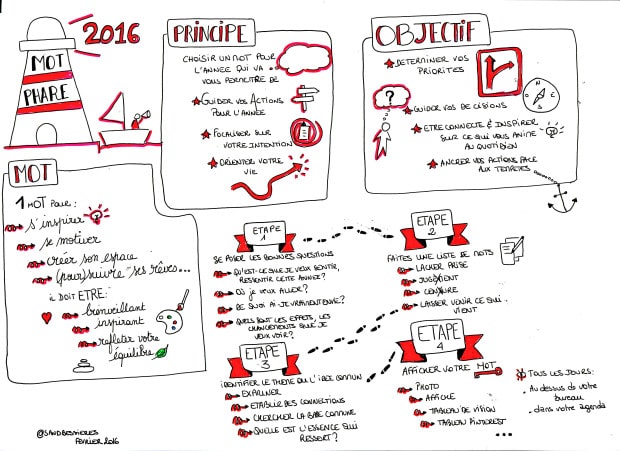 2016
MOT
PHARE
PRINCIPE
CHOISIR UN MOT POUR
L'ANNEE QUI VA
VOUS PERMETTRE DE
GUIDER VOS ACTIONS
POUR L'ANNÉE
FOCALISER SUR
VOTRE INTENTION
ORIENTER VOTRE
VIE
OBJECTIF
DETERMINER VOS
PRIORITES
?
GUIDER VOS DECISIONS
ETRE CONNECTE & INSPIRER
SUR CE QUI VOUS ANIME
AU QUOTIDIEN
ANCRER VOS ACTIONS FACE
AUX TEMPETES
N
E
S
O
MOT
1 MOT POUR :
s'inspirer
se motiver
créer son espace
(pour)suivre ses rêves...
il doit ETRE :
bienveillant
inspirant
refléter votre
équilibre
ETAPE
1
SE POSER LES BONNES QUESTIONS
QU'EST-CE QUE JE VEUX SENTIR,
RESSENTIR CETTE ANNEE?
OÙ JE VEUX ALLER?
DE QUOI AI-JE VRAIMENT ENVIE?
QUELS SONT LES EFFETS, LES
CHANGEMENTS QUE JE
VEUX VOIR?
ETAPE
2
FAITES UNE LISTE DE MOTS
LACHER PRISE
JUGEMENT
CENSURE
LAISSER VENIR CE QUI
VIENT
ETAPE
3
IDENTIFIER LE THEME OU L'IDEE COMMUN
EXPRIMER
ETABLIR DES CONNECTIONS
CHERCHER LA BASE COMMUNE
QUELLE EST L'ESSENCE QUI
RESSORT?
ETAPE
4
AFFICHER VOTRE MOT
PHOTO
AFFICHE
TABLEAU DE VISION
TABLEAU PINTEREST
...
TOUS LES JOURS :
. Au dessus de votre
bureau
. dans votre agenda
...
FEVRIER 2016